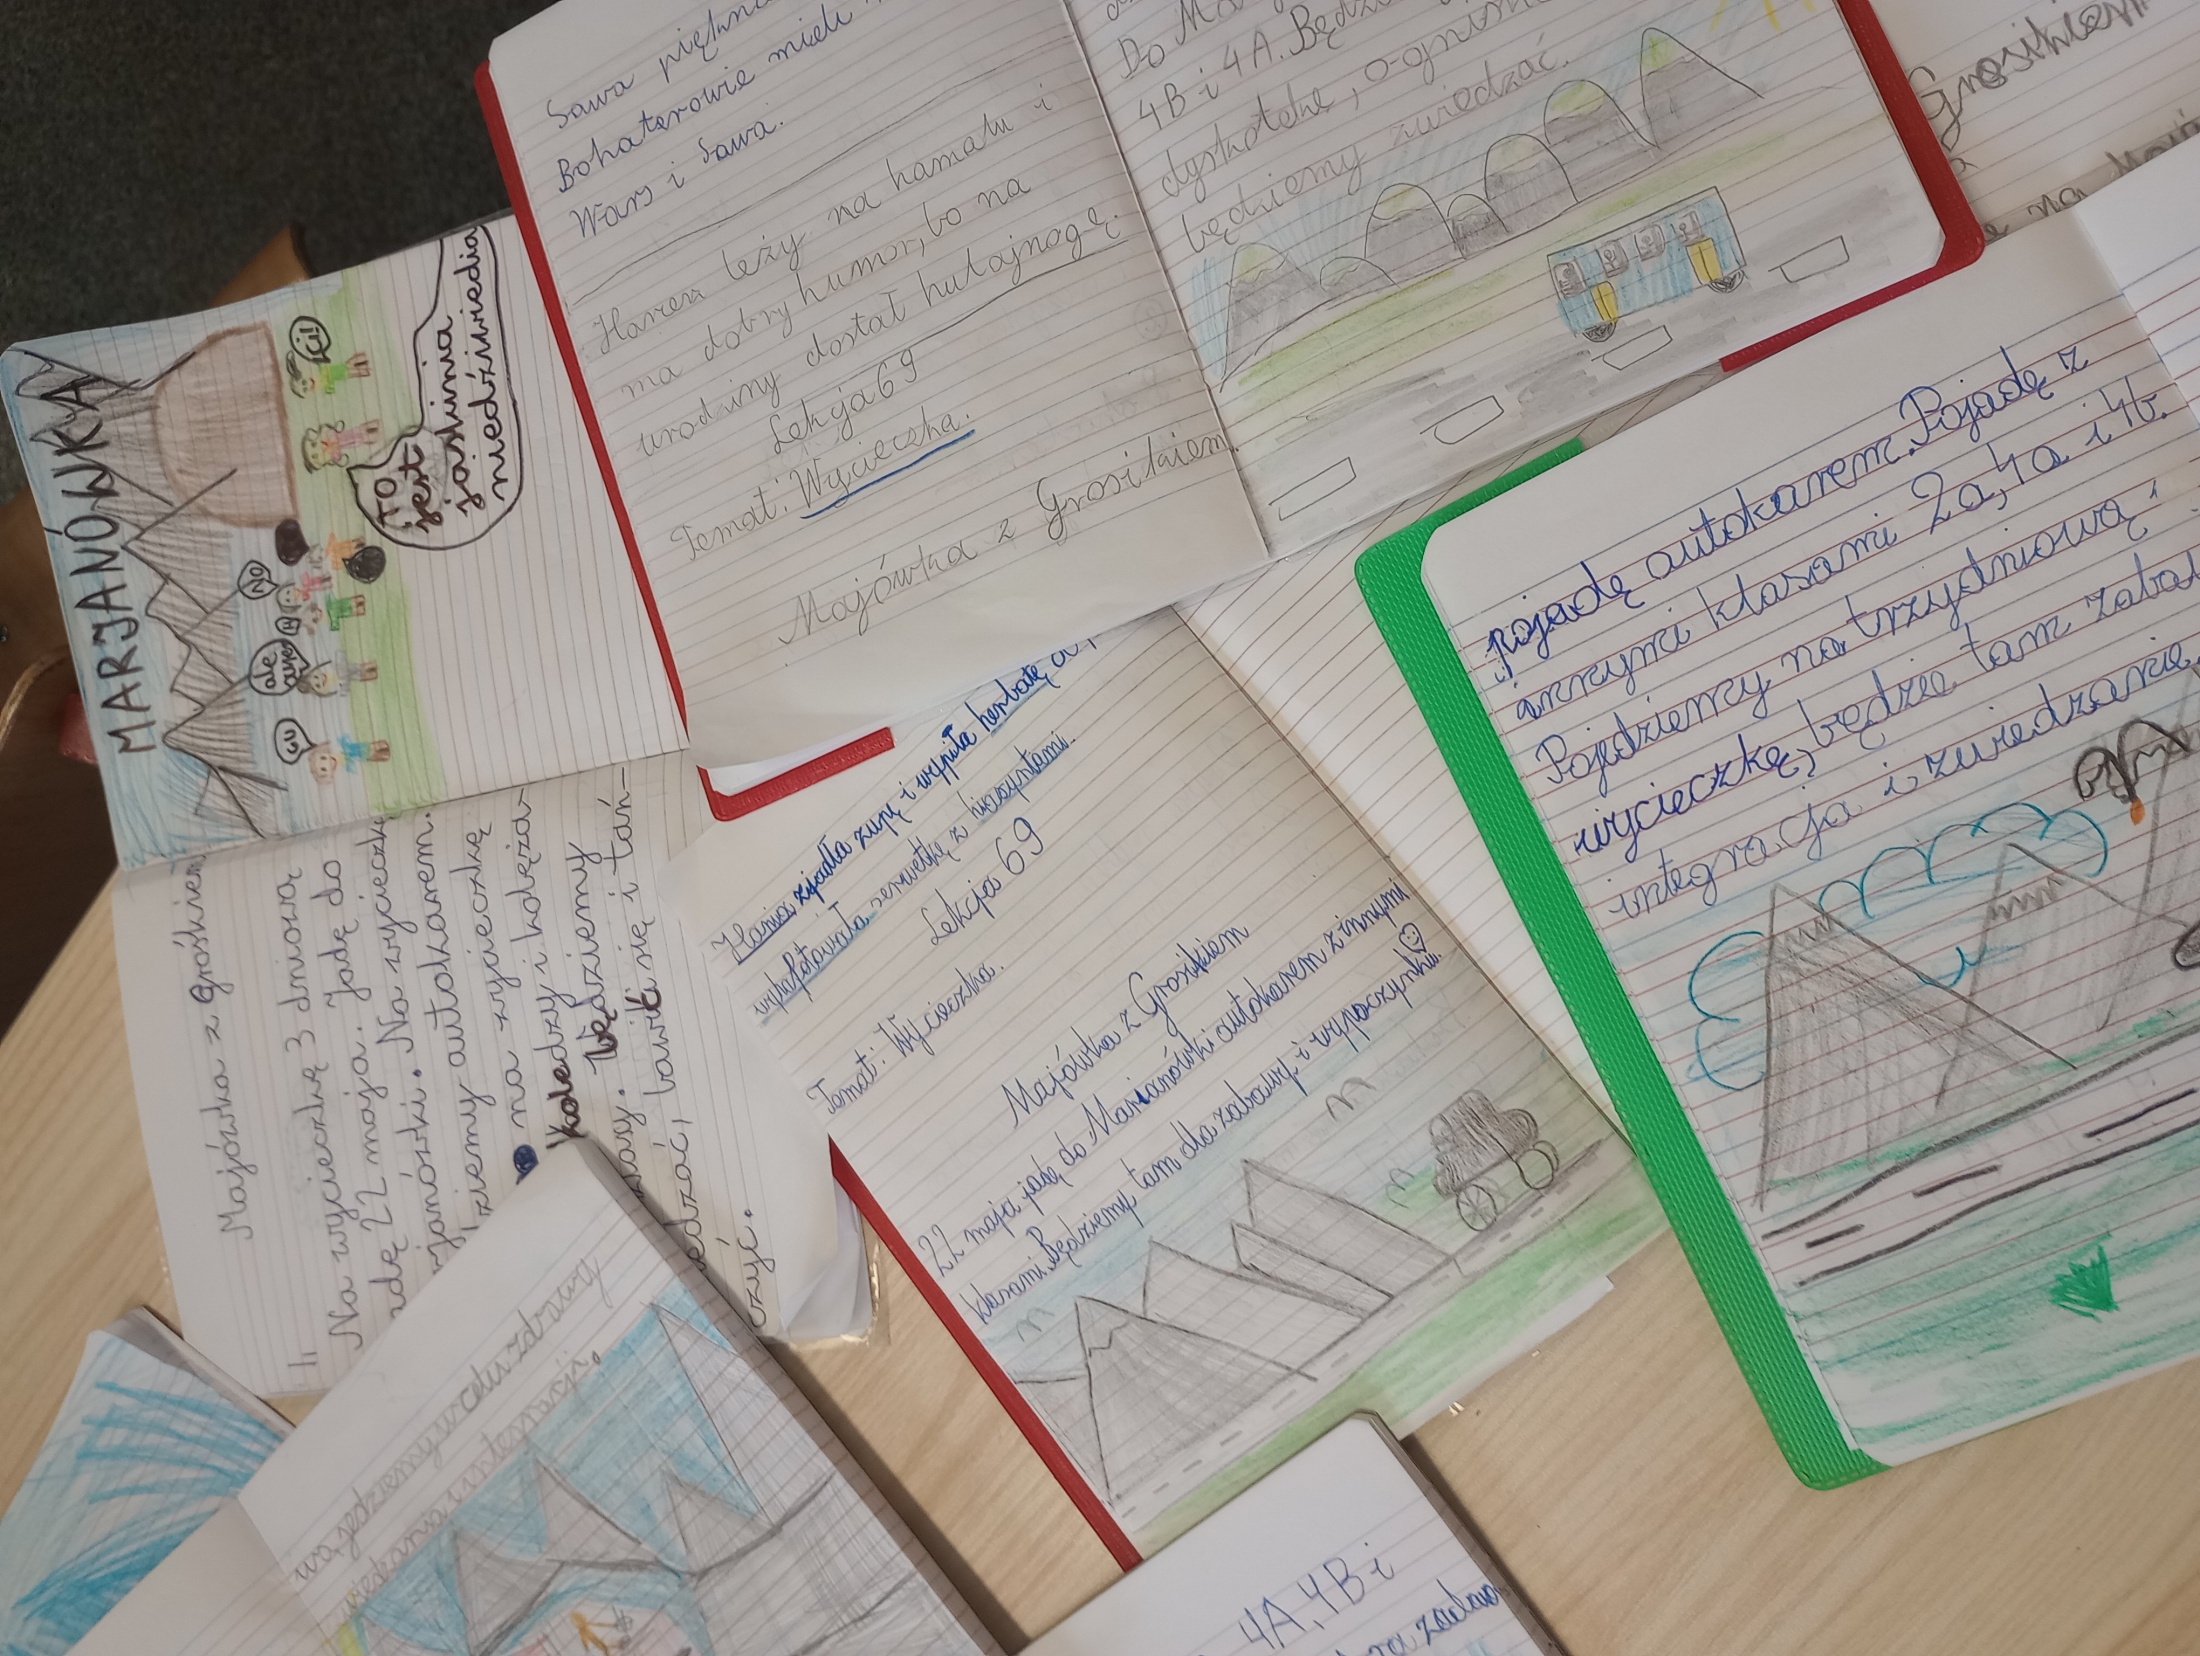 Sawa piękna
Bohaterowie mieli
Wars i Sawa.
Harcerz leży na hamaku i
ma dobry humor, bo na
urodziny dostał hulajnogę.
Lekcja 69
Temat: Wycieczka.
Majówka z Grosikiem
Do
4B i 4A. Będzi
dyskoteke, o-gnisk
będziemy zwiedzać.
Grosikiem
na
MARJANÓWKA
Ej!
NO
ale
UU
TO
jest
jaskinia
niedźwiedia
Majówka z Grośkiem
Na wycieczkę 3 dniową
adę 22 maja. Jadę do
rjanówki. Na wycieczk
dziemy autokarem.
na wycieczkę
koledzy i koleża-
Będziemy
edzać, bawić się i tań-
czyć.
Hania zjadła zupę i wypiła herbatę
wyhaftowała serwetkę z hiacyntami.
Lekcja 69
Temat: Wycieczka.
Majówka z Grosikiem
22 maja jadę do Marianówki autokarem z innymi
klasami. Będziemy tam dla zabawy i wypoczynku.
pojadę autokarem. Pojadę z
innymi klasami 2a, 4a i 4b.
Pojedziemy na trzydniową
wycieczkę, będzie tam zaba
integracja i zwiedzanie
wą jedziemy w celu zdrowy
i integracji.
4A, 4B i